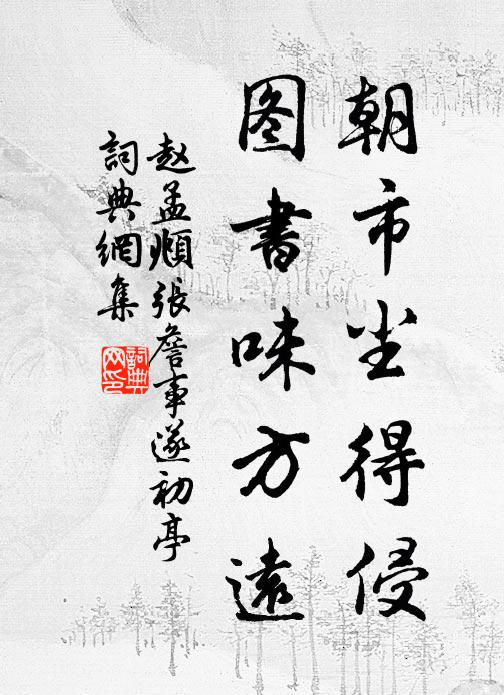 朝市尘得侵
图書味方遠
赵孟頫張詹事遂初亭
詞典網集
詞典网印